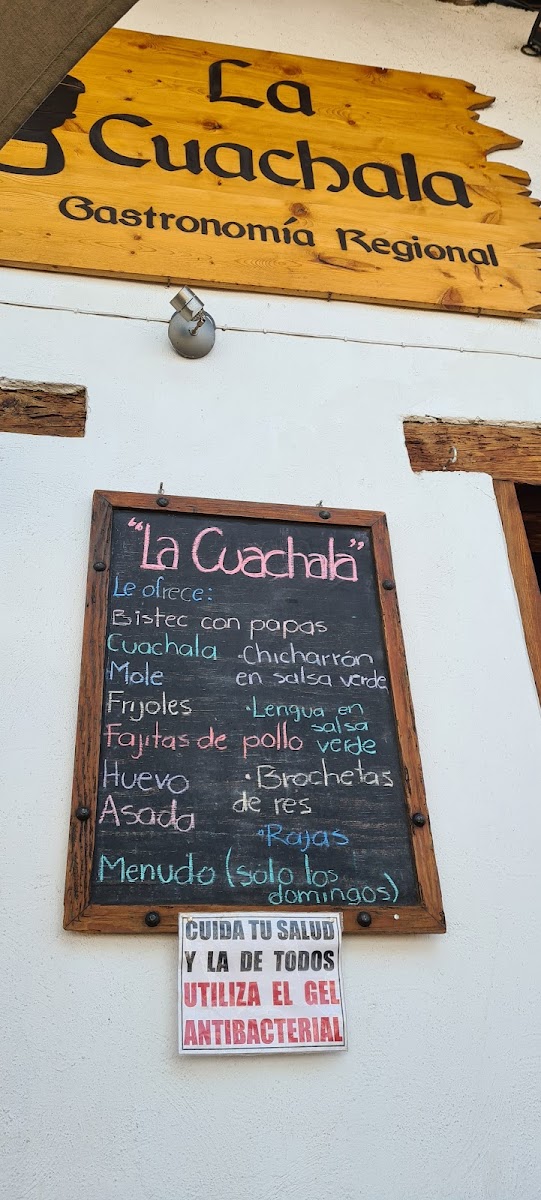 La
Cuachala
Gastronomía Regional
"La Cuachala"
Le ofrece:
Bistec con papas
Cuachala
Mole
Frijoles
Fajitas de pollo
Huevo
Asada
·Chicharrón
en salsa verde
·Lengua en
salsa
verde
·Brochetas
de res
·Rajas
Menudo (sólo los
domingos)
CUIDA TU SALUD
Y LA DE TODOS
UTILIZA EL GEL
ANTIBACTERIAL